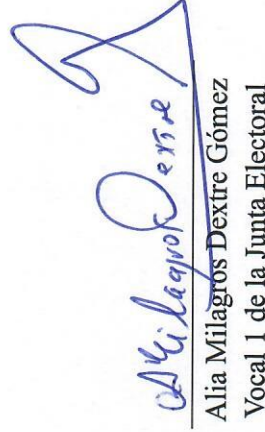 AMilagros Dextre
Alia Milagros Dextre Gómez
Vocal 1 de la Junta Electoral